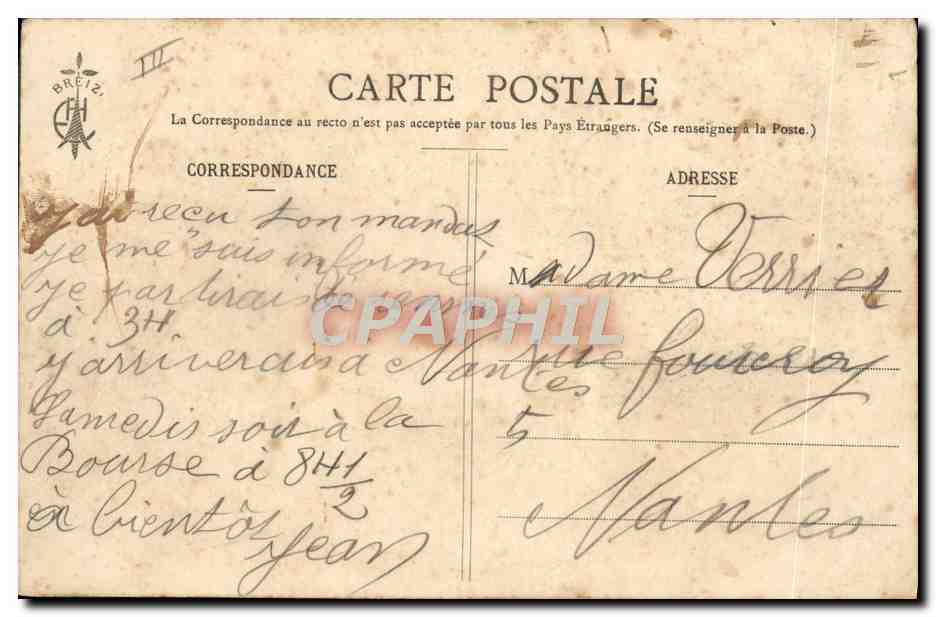 III
BREIZ
CARTE POSTALE
La Correspondance au recto n'est pas acceptée par tous les Pays Étrangers. (Se renseigner à la Poste.)
CORRESPONDANCE
ADRESSE
j'ai reçu ton mandat
je me suis informé
je partirais de
à 3H
j'arriverais a Nantes
Samedis soir à la
Bourse à 8H 1/2
à bientôt
Jean
Madame Verrier
rue fourcroy
5
Nantes
CPAPHIL